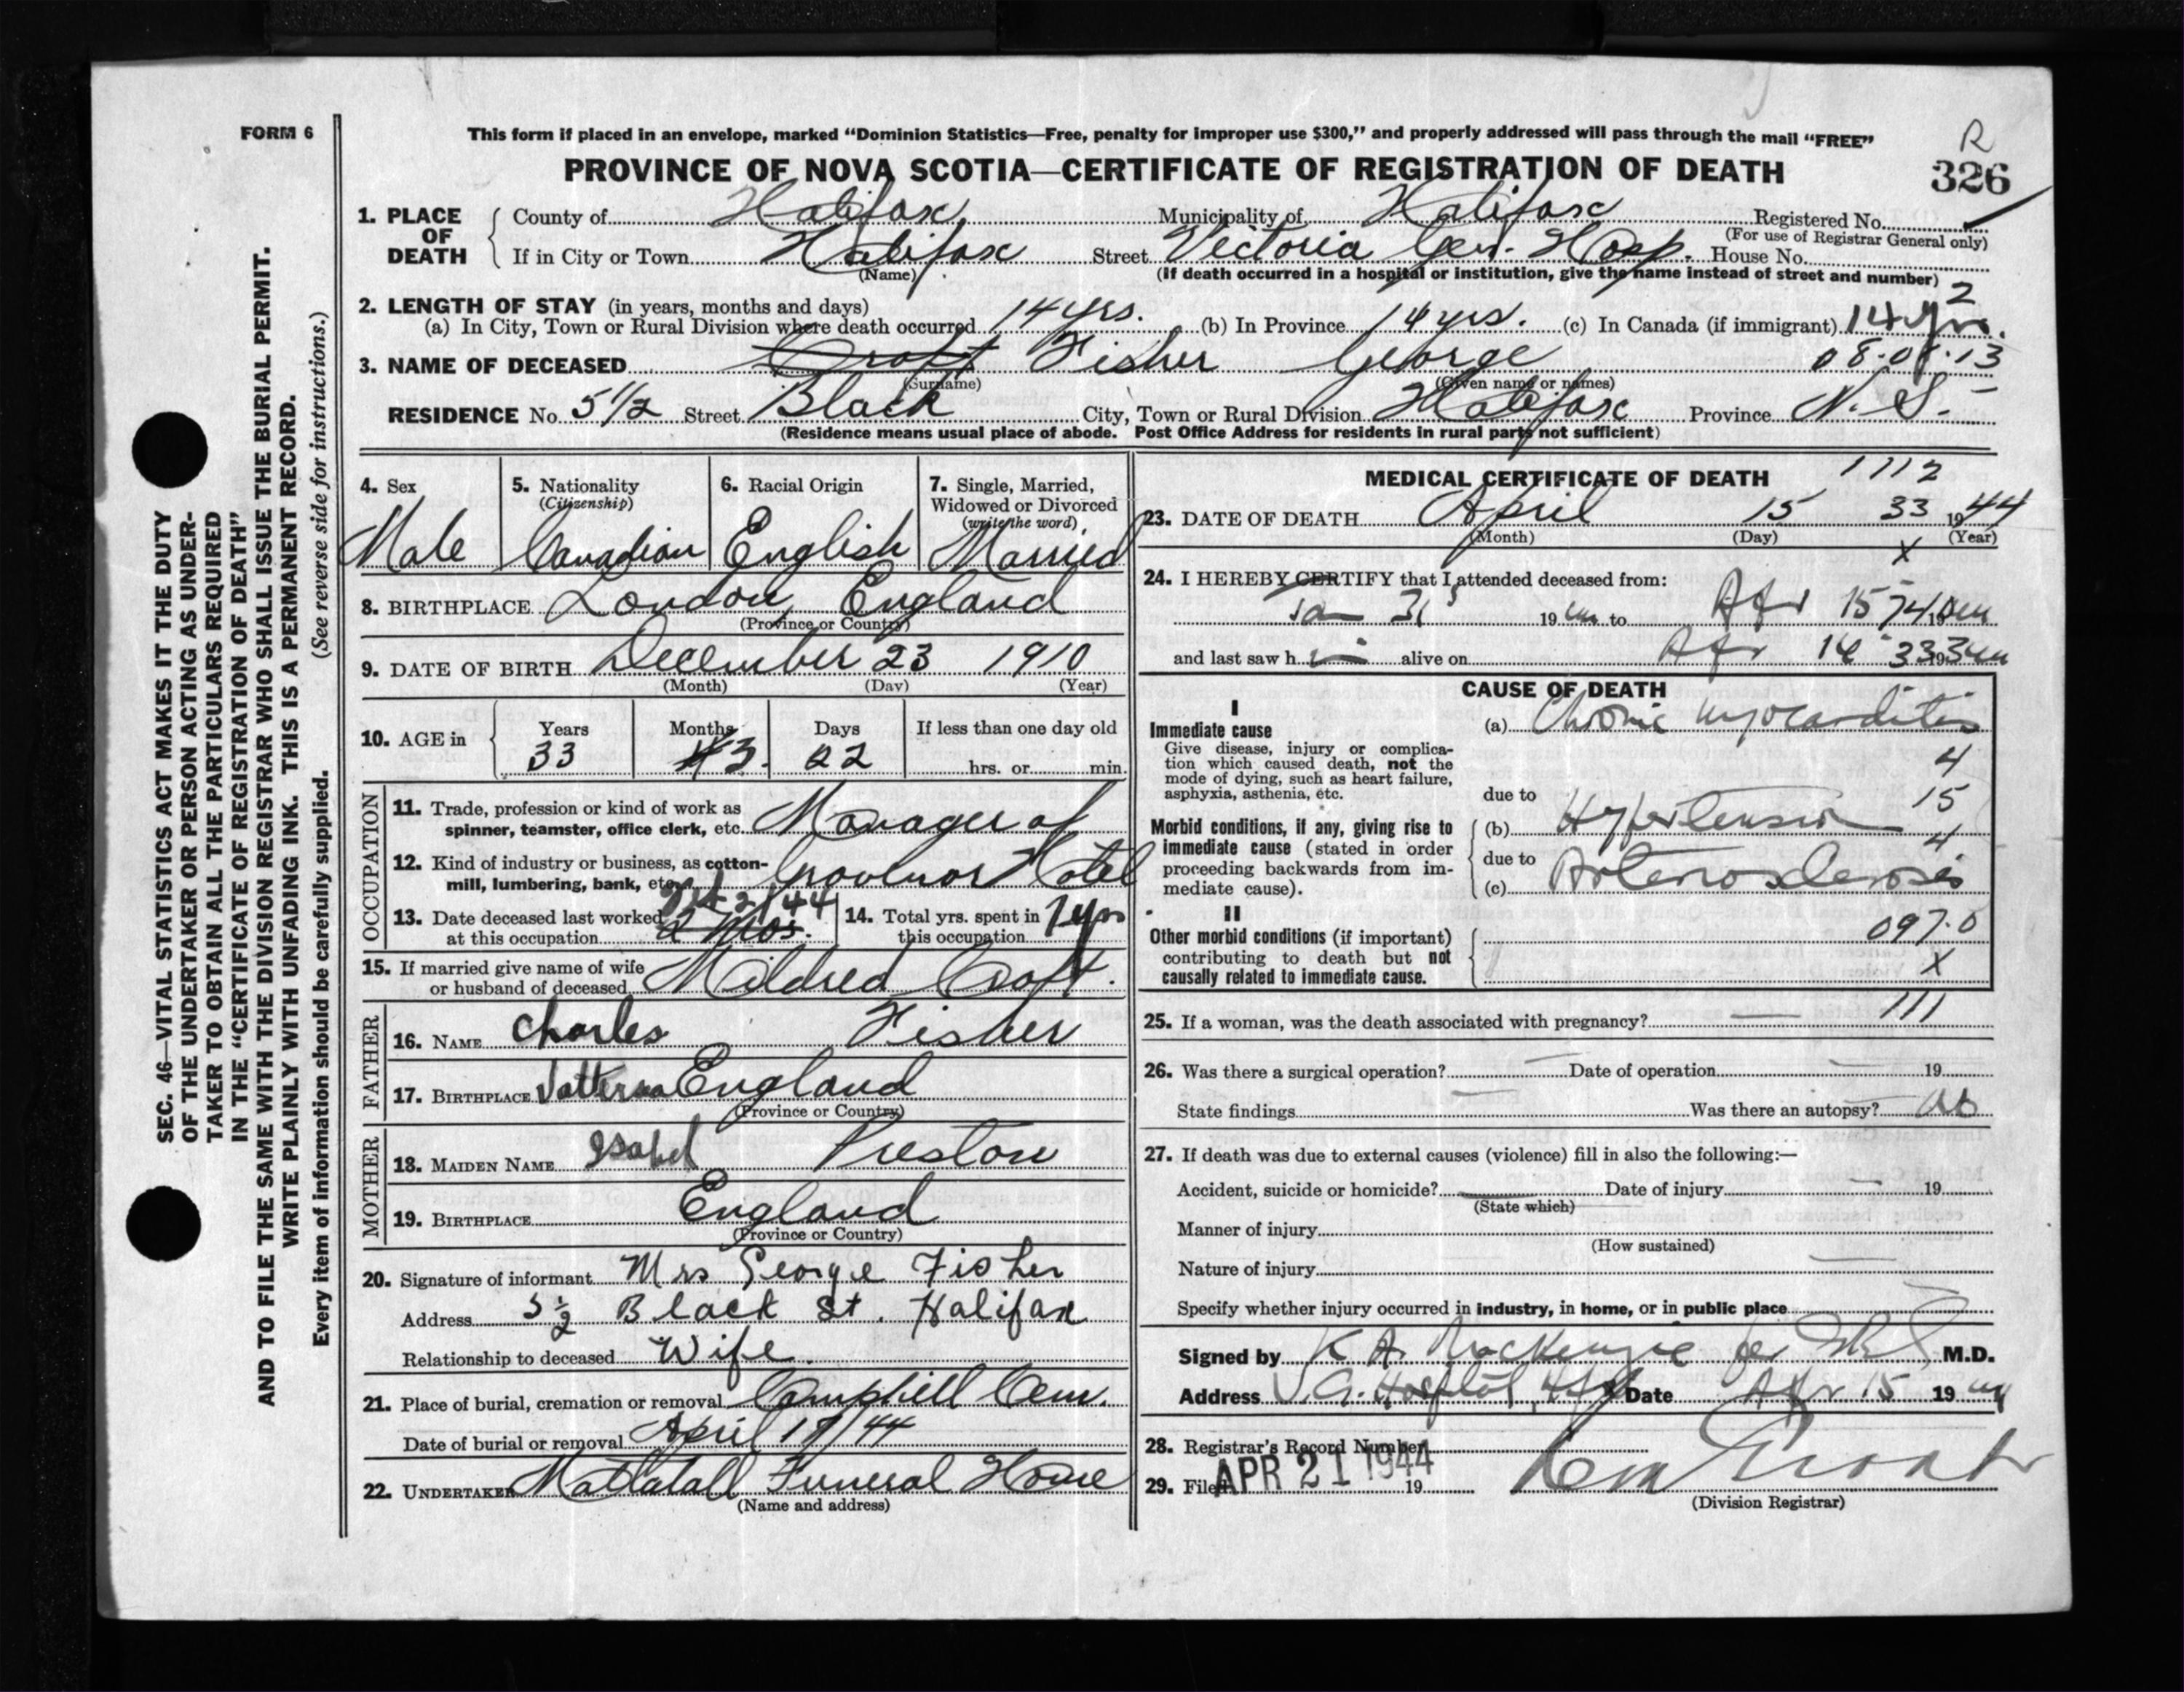 FORM 6
This form if placed in an envelope, marked "Dominion Statistics—Free, penalty for improper use $300," and properly addressed will pass through the mail "FREE"
R
PROVINCE OF NOVA SCOTIA—CERTIFICATE OF REGISTRATION OF DEATH
326
1. PLACE OF DEATH
County of Halifax, Municipality of Halifax Registered No.
(For use of Registrar General only)
If in City or Town Halifax Street Victoria Gen. Hosp. House No.
(Name) (If death occurred in a hospital or institution, give the name instead of street and number)
2. LENGTH OF STAY (in years, months and days) 2
(a) In City, Town or Rural Division where death occurred 14 yrs. (b) In Province 14 yrs. (c) In Canada (if immigrant) 14 yrs.
3. NAME OF DECEASED Croft Fisher George 08.08.13
(Surname) (Given name or names)
RESIDENCE No. 5 1/2 Street Black City, Town or Rural Division Halifax Province N.S.
(Residence means usual place of abode. Post Office Address for residents in rural parts not sufficient)
4. Sex Male
5. Nationality (Citizenship) Canadian
6. Racial Origin English
7. Single, Married, Widowed or Divorced (write the word) Married
8. BIRTHPLACE London, England
(Province or Country)
9. DATE OF BIRTH December 23 1910
(Month) (Day) (Year)
10. AGE in Years 33 Months 3. Days 22 If less than one day old hrs. or min.
OCCUPATION
11. Trade, profession or kind of work as spinner, teamster, office clerk, etc. Manager of
12. Kind of industry or business, as cotton-mill, lumbering, bank, etc. Govenor Hotel
13. Date deceased last worked at this occupation 2 mos. 2/44
14. Total yrs. spent in this occupation 1 yr
15. If married give name of wife or husband of deceased Mildred Croft.
FATHER
16. NAME Charles Fisher
17. BIRTHPLACE England
(Province or Country)
MOTHER
18. MAIDEN NAME Isabel Preston
19. BIRTHPLACE England
(Province or Country)
20. Signature of informant Mrs George Fisher
Address 5 1/2 Black St. Halifax
Relationship to deceased Wife.
21. Place of burial, cremation or removal Camphill Cem.
Date of burial or removal April 17/44
22. UNDERTAKER Mattatall Funeral Home
(Name and address)
MEDICAL CERTIFICATE OF DEATH 1112
23. DATE OF DEATH April 15 33 1944
(Month) (Day) (Year)
X
24. I HEREBY CERTIFY that I attended deceased from:
Jan 31 1944 to Apr 15 74.0 1944
and last saw him alive on Apr 14 333 1944
CAUSE OF DEATH
I
Immediate cause
Give disease, injury or complication which caused death, not the mode of dying, such as heart failure, asphyxia, asthenia, etc.
(a) Chronic myocarditis
4
due to
15
Morbid conditions, if any, giving rise to immediate cause (stated in order proceeding backwards from immediate cause).
(b) Hypertension
4
due to
(c) Arteriosclerosis
II
Other morbid conditions (if important) contributing to death but not causally related to immediate cause.
097.0
X
25. If a woman, was the death associated with pregnancy? 111
26. Was there a surgical operation? Date of operation 19
State findings Was there an autopsy? No
27. If death was due to external causes (violence) fill in also the following:—
Accident, suicide or homicide? Date of injury 19
(State which)
Manner of injury
(How sustained)
Nature of injury
Specify whether injury occurred in industry, in home, or in public place
Signed by K A MacKenzie M.D.
Address V.G. Hospital, Hfx Date Apr 15 1944
28. Registrar's Record Number
29. Filed APR 21 1944 19
(Division Registrar)
SEC. 46—VITAL STATISTICS ACT MAKES IT THE DUTY
OF THE UNDERTAKER OR PERSON ACTING AS UNDER-
TAKER TO OBTAIN ALL THE PARTICULARS REQUIRED
IN THE "CERTIFICATE OF REGISTRATION OF DEATH"
AND TO FILE THE SAME WITH THE DIVISION REGISTRAR WHO SHALL ISSUE THE BURIAL PERMIT.
WRITE PLAINLY WITH UNFADING INK. THIS IS A PERMANENT RECORD.
Every item of information should be carefully supplied. (See reverse side for instructions.)